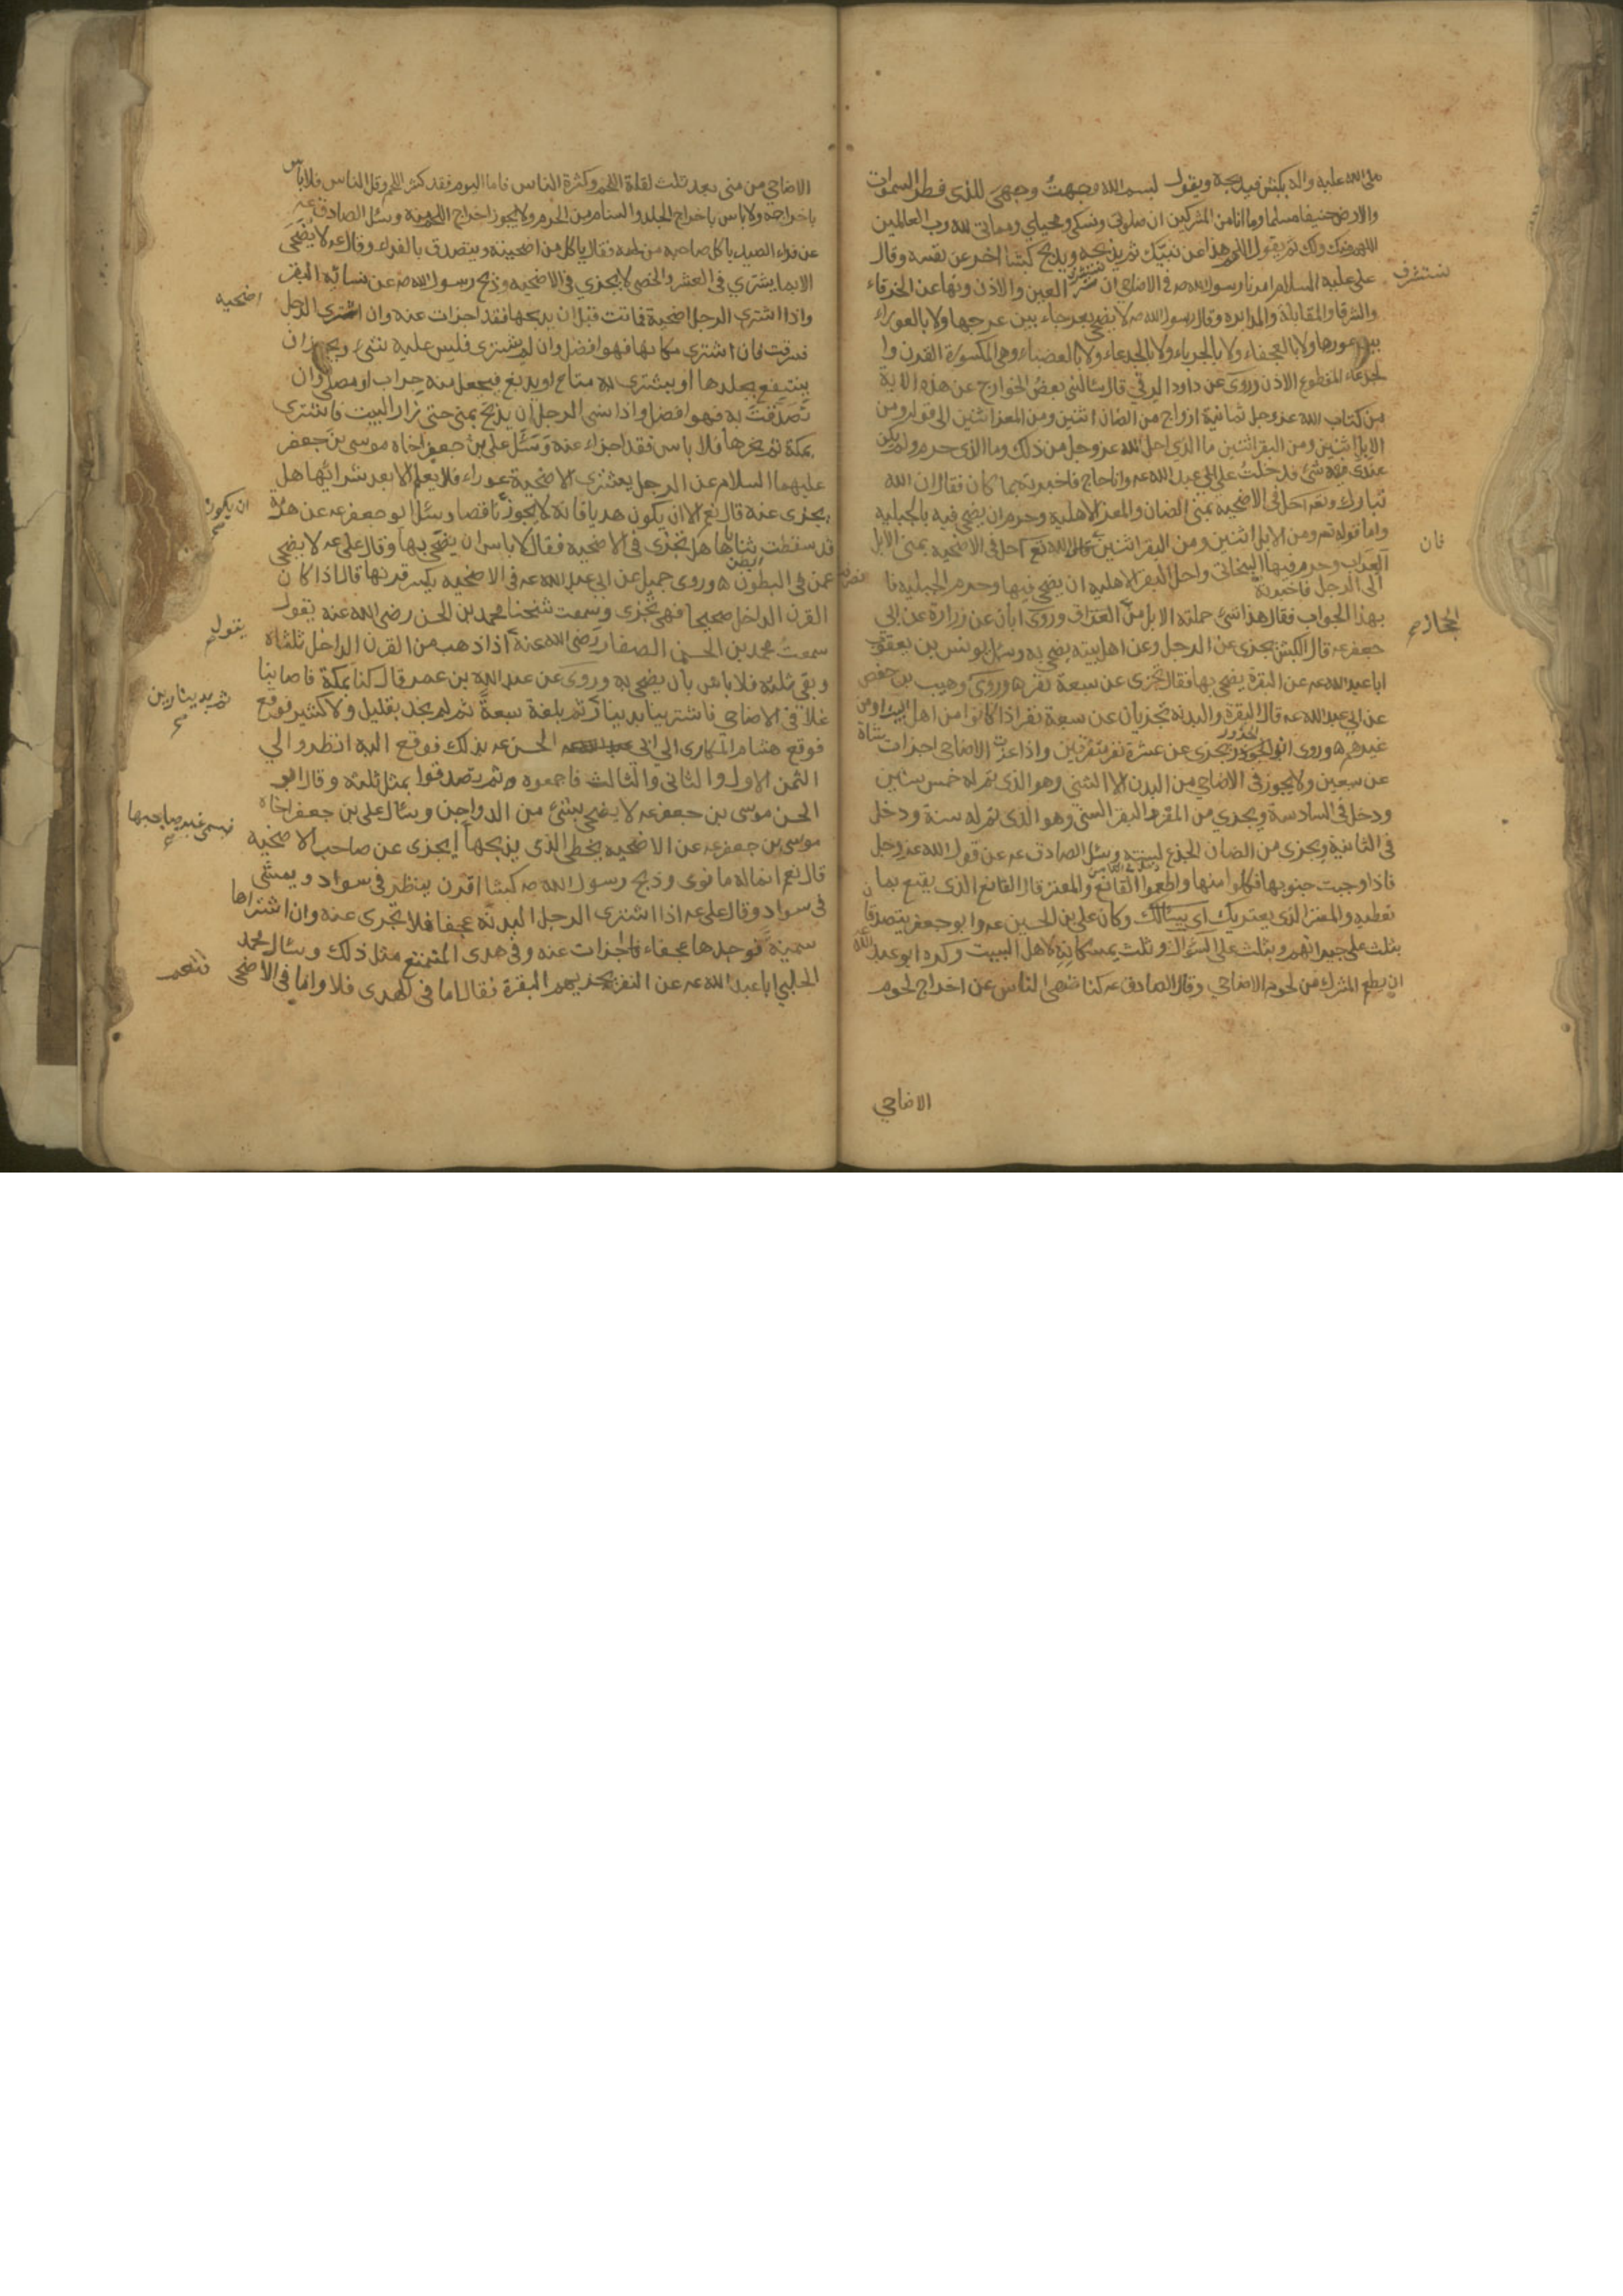 صلى الله عليه واله بكبش فيذبحه ويقول بسم الله وجهت وجهي للذي فطر السموات
والارض حنيفا مسلما وما انا من المشركين ان صلوتي ونسكي ومحياي ومماتي لله رب العالمين
اللهم منك ولك ثم يقول اللهم هذا عن نبيك ثم يذبحه ويذبح كبشا اخر عن نفسه وقال
على عليه السلام امرنا رسول الله صه في الاضاحي ان نستشرف العين والاذن ونهانا عن الخرقاء
نستشرف
والشرقا والمقابلة والمدابره وقال رسول الله صه لا يضحى بعرجاء بين عرجها ولا بالعوراء
بين عورها ولا بالعجفاء ولا بالجرباء ولا بالجدعاء ولا بالعضباء وهي المكسورة القرن وا
لجدعاء المقطوع الاذن وروى عن داود الرقي قال سالني بعض الخوارج عن هذه الاية
من كتاب الله عز وجل ثمانية ازواج من الضان اثنين ومن المعز اثنين الى قوله ومن
الابل اثنين ومن البقر اثنين ما الذي احل الله عز وجل من ذلك وما الذي حرم ولم يكن
عندي فيه شئ فدخلت على ابي عبد الله عه وانا حاج فاخبرته بما كان فقال ان الله
تبارك وتعه احل في الاضحية بمنى الضان والمعز الاهلية وحرم ان يضحى فيه بالجبلية
واما قوله تعه ومن الابل اثنين ومن البقر اثنين فان الله تع احل في الاضحيه بمنى الابل
فان
العراب وحرم فيها البخاتي واحل البقر الاهليه ان يضحى فيها وحرم الجبليه فا
الى الرجل فاخبرته
بهذا الجواب فقال هذا شئ حملته الابل من العراق وروى ابان عن زرارة عن ابي
الحجاز
جعفر عه قال الكبش يجزى عن الرجل وعن اهل بيته يضحى به وسئل يونس بن يعقوب
ابا عبد الله عه عن البقرة يضحى بها فقال تجزى عن سبعة نفر وروى وهيب بن حفص
عن ابي عبد الله عه قال البقرة والبدنه تجزيان عن سبعة نفر اذا كانوا من اهل البيت او من
غيرهم وروى ان الجزور يجزى عن عشرة نفر متفرقين واذا عزت الاضاحي اجزات شاة
عن سبعين ولا يجوز في الاضاحي من البدن الا الثني وهو الذي تم له خمس سنين
ودخل في السادسة ويجزي من المعز والبقر الثني وهو الذي تم له سنة ودخل
في الثانية ويجزى من الضان الجذع لسنته وسئل الصادق عه عن قول الله عز وجل
فاذا وجبت جنوبها فكلوا منها واطعموا القانع والمعتر قال القانع الذي يقنع بما
تعطيه والمعتر الذي يعتريك اي يسالك وكان علي بن الحسين عه وابو جعفر يتصدقان
بثلث على جيرانهم وبثلث على السؤال وثلث يمسكانه لاهل البيت وكره ابو عبد الله
ان يطعم المشرك من لحوم الاضاحي وقال الصادق عه كنا ننهى الناس عن اخراج لحوم
الاضاحي
الاضاحي من منى بعد ثلث لقلة اللحم وكثرة الناس فاما اليوم فقد كثر اللحم وقل الناس فلا باس
باخراجه ولا باس باخراج الجلد والسنام من الحرم ولا يجوز اخراج اللحم منه وسئل الصادق عه
عن فداء الصيد ياكل صاحبه من لحمه فقال ياكل من اضحيته ويتصدق بالفداء وقال عه لا يضحى
الا بما يشترى في العشر والخصى لا يجزي في الاضحيه وذبح رسول الله صه عن نسائه البقر
واذا اشترى الرجل اضحية فماتت قبل ان يذبحها فقد اجزات عنه وان اشترى الرجل
اضحيه
فسرقت فان اشترى مكانها فهو افضل وان لم يشترى فليس عليه شئ ويجوز ان
ينتفع بجلدها او يشترى به متاع او يدبغ فيجعل منه جراب او مصلى وان
تصدقت به فهو افضل واذا نسى الرجل ان يذبح بمنى حتى زار البيت فاشترى
بمكة ثم نحرها فلا باس فقد اجزاء عنه وسئل علي بن جعفر اخاه موسى بن جعفر
عليهما السلام عن الرجل يشتري الاضحية عوراء فلا يعلم الا بعد شرائها هل
يجزى عنه قال نعم الا ان يكون هديا فانه لا يجوز ناقصا وسئل ابو جعفر عه عن هرمة
ان يكون
قد سقطت ثناياها هل تجزى في الاضحيه فقال لا باس ان يضحى بها وقال على عه لا يضحى
عمن في البطن وروى جميل عن ابي عبد الله عه في الاضحيه يكسر قرنها قال اذا كان
القرن الداخل صحيحا فهي تجزى وسمعت شيخنا محمد بن الحسن رضي الله عنه يقول
يقول
سمعت محمد بن الحسن الصفار رضي الله عنه اذا ذهب من القرن الداخل ثلثاه
وبقي ثلثه فلا باس بان يضحى به وروى عن عبد الله بن عمر قال كنا بمكة فاصابنا
غلا في الاضاحي فاشترينا بدينار ثم بلغة سبعة ثم لم نجد بقليل ولا كثير فوقع
ثم بدينارين
فوقع هشام المكارى الى ابي الحسن عه بذلك فوقع اليه انظروا الي
الثمن الاول والثاني والثالث فاجمعوه ثم تصدقوا بمثل ثلثه وقال ابو
الحسن موسى بن جعفر عه لا يضحى بشئ من الدواجن وسئال علي بن جعفر اخاه
موسى بن جعفر عه عن الاضحيه يخطى الذي يذبحها ايجزى عن صاحب الاضحيه
فيسمى غير صاحبها
قال نعم انما له ما نوى وذبح رسول الله صه كبشا اقرن ينظر في سواد ويمشي
في سواد وقال على عه اذا اشترى الرجل البدنة عجفا فلا تجزى عنه وان اشتراها
سمينة فوجدها عجفاء اجزات عنه وفي هدى المتمتع مثل ذلك وسئال محمد
الحلبي ابا عبد الله عه عن النفر تجزيهم البقرة فقال اما في الهدى فلا واما في الاضحى
فنعم